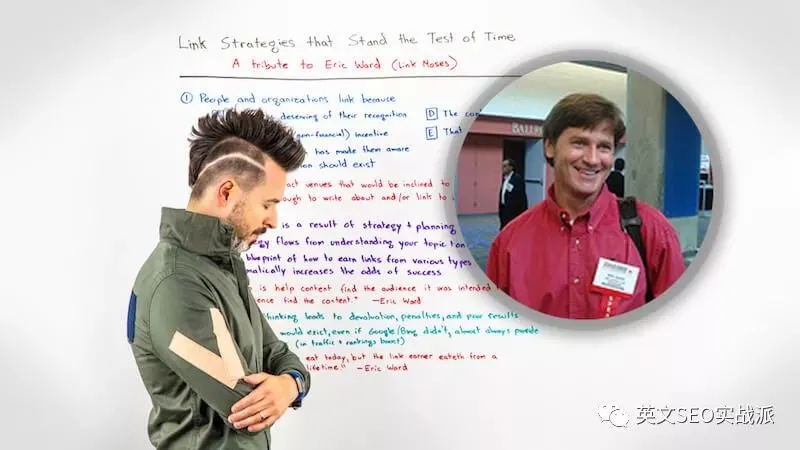 Link Strategies that Stand the Test of Time
A tribute to Eric Ward (Link Moses)
① People and organizations link because
deserving of their recognition
D The con
(non-financial) incentive
E That
has made them aware
ion should exist
act venues that would be inclined to
ough to write about and/or link to
is a result of strategy + planning,
egy flows from understanding your topic + con
blueprint of how to earn links from various types
matically increases the odds of success
is help content find the audience it was intended
ence find the content." -Eric Ward
hinking leads to devaluation, penalties, and poor results
would exist, even if Google/Bing didn't, almost always provide
(in traffic + rankings boost)
eat today, but the link earner eateth from a
lifetime" -Eric Ward
BALLRO
英文SEO实战派